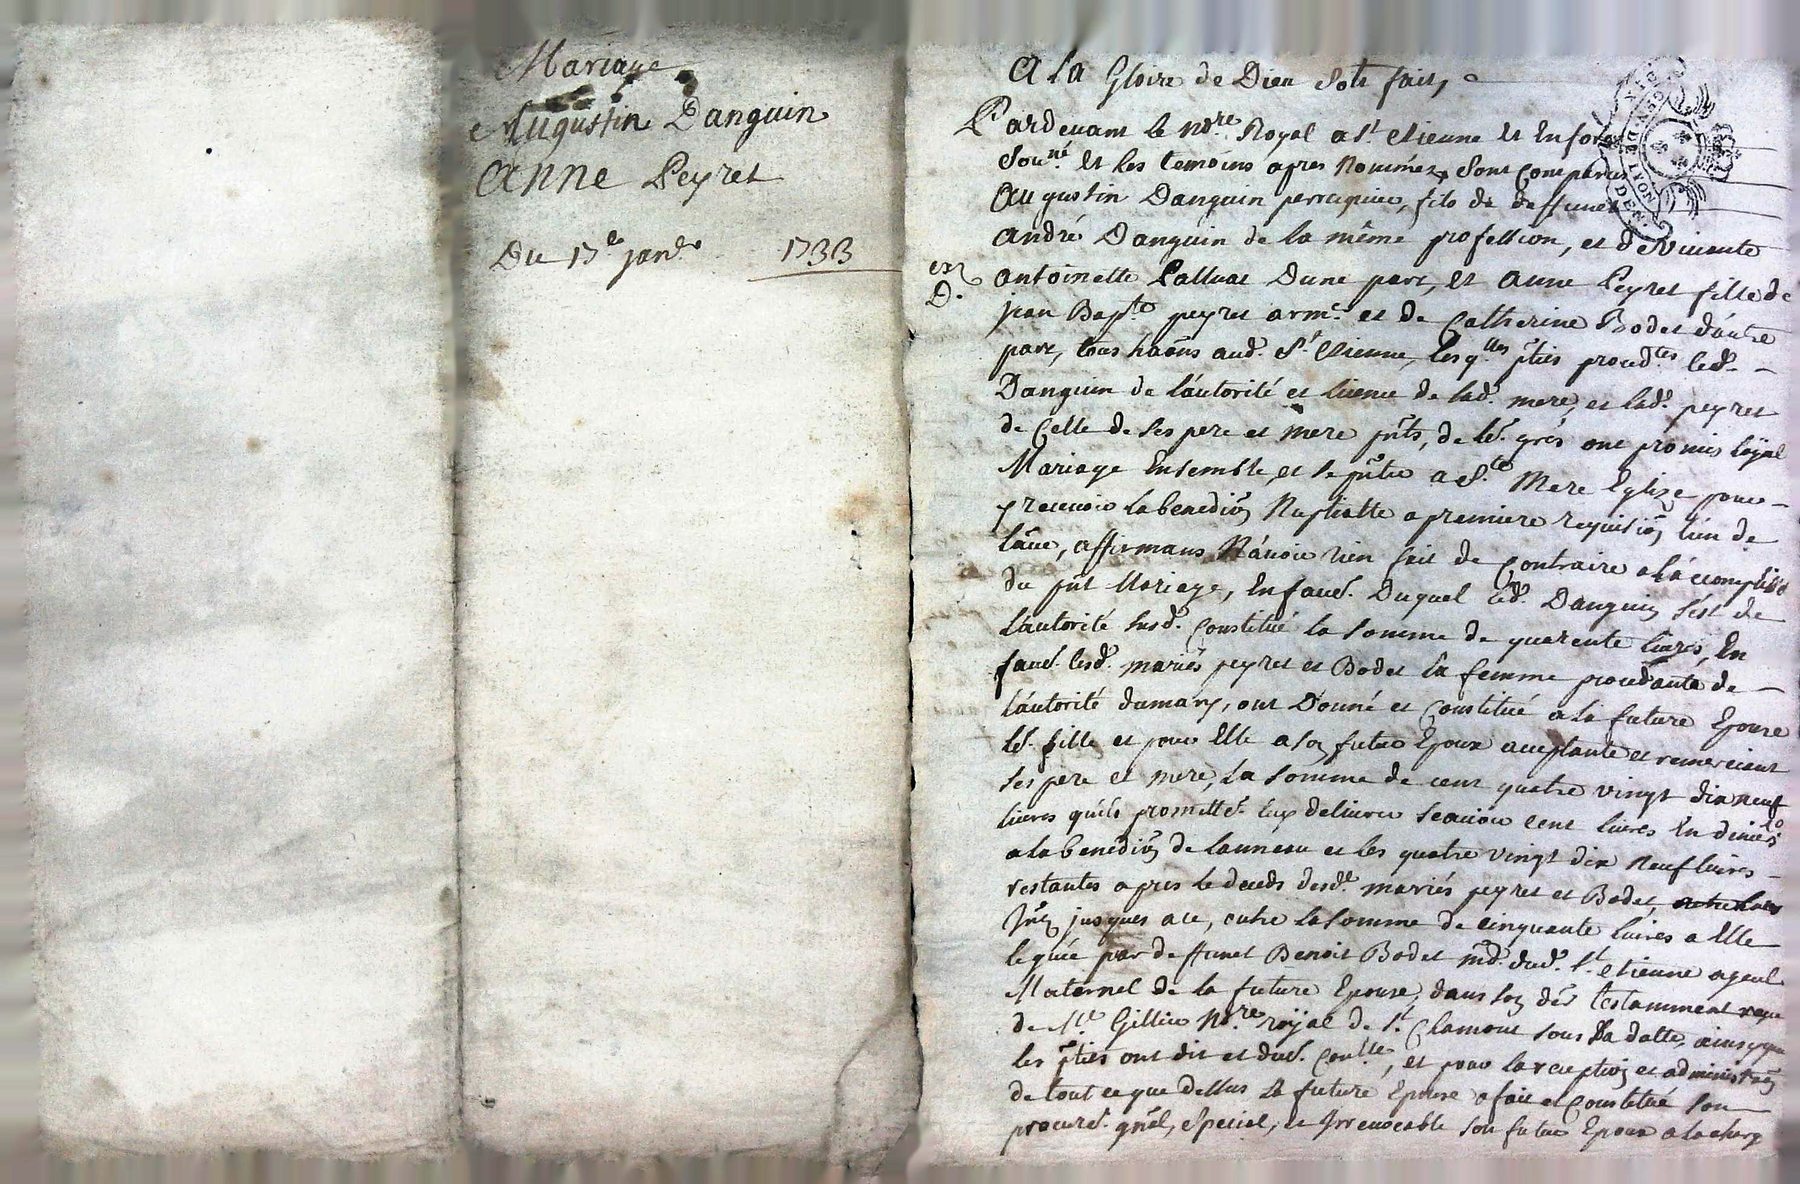 Mariage
Augustin Danguin
Anne Peyret
Du 17e janer 1733
A la Gloire de Dieu Soit fait,
Pardevant le Nore Royal a St etienne et En forez
Souné et les temoins apres Nommez, Sont Comparus
Augustin Danguin perruquier, fils de deffunct
André Danguin de la même profession, et de Vivante
Antoinette Palluat Dune part, et Anne Peyret fille de
Jean Bapte peyret armr et de Catherine Bodet d'autre
part, tous haôns aud. St Etienne, lesqlles pties procedtes led.
Danguin de l'autorité et licence de lad. mere, et lad. peyret
de Celle de ses pere et mere pñts, de lr grés ont promis loyal
Mariage Ensemble, et se pñter a Ste Mere Eglize pour
y recevoir la benedion Nuptialle a premiere requision lun de
lâue, affirmans N'avoir rien fait de Contraire a l'acomplisst
du pñt Mariage, En favr. Duquel led. Danguin s'est de
l'autorité susd. Constitué la somme de quarente livres, En
favr. lesd. mariés peyret et Bodet la femme procedante de
l'autorité du mary, ont Donné et Constitué a la future Epouse
lr. fille et pour Elle a son futur Epoux acceptante et remerciant
ses pere et mere, la somme de cent quatre vingt dix neuf
livres quils promittr. luy delivrer scavoir cent livres En deniers
a la benedion de lanneau et les quatre vingt dix Neuf livres
restantes apres le deceds desd. mariés peyret et Bodet,
jusques a ce, outre la somme de cinquante livres a Elle
leguée par deffunct Benoit Bodet md. dud. St etienne ayeul
Maternel de la future Epouse, dans son der testamment reçu
de Me Gillier Nore royal de St Chamont sous sa datte, ainsy que
les pties ont dit et et pour la reception et administrôn
de tout ce que dessus la future Epouse a fait et Constitué Son
procurr. gnâl, Special, et Irrevocable son futur Epoux a la charge